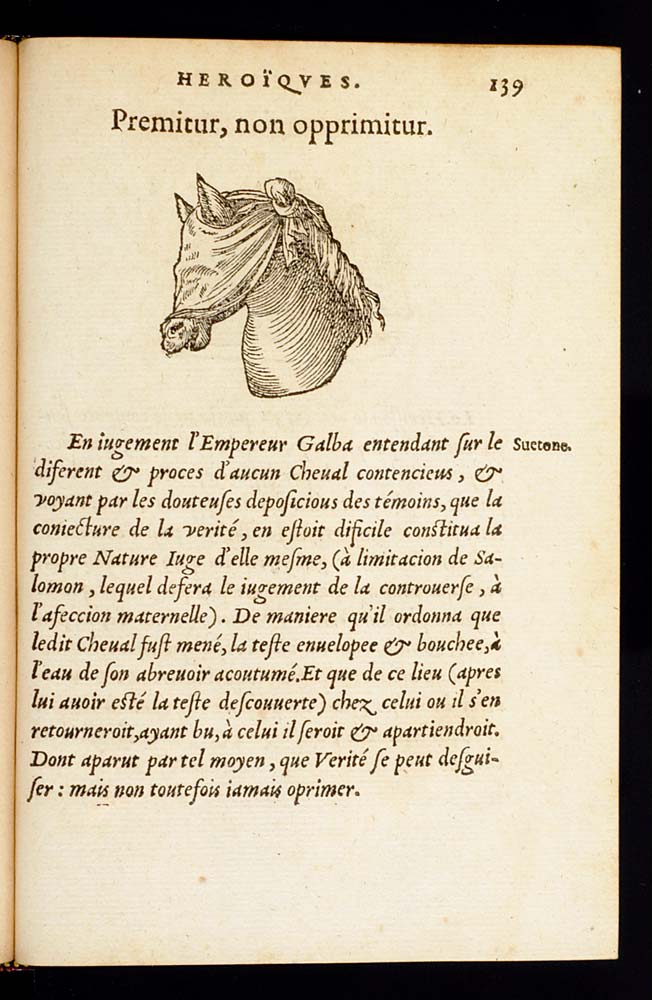 HEROÏQVES. 139
Premitur, non opprimitur.
En iugement l'Empereur Galba entendant ſur le Suetone.
diferent & proces d'aucun Cheual contencieus, &
voyant par les douteuſes depoſicious des témoins, que la
coniecture de la verité, en eſtoit dificile conſtitua la
propre Nature Iuge d'elle meſme, (à limitacion de Sa-
lomon, lequel defera le iugement de la controuerſe, à
l'afeccion maternelle). De maniere qu'il ordonna que
ledit Cheual fuſt mené, la teſte enuelopee & bouchee, à
l'eau de ſon abreuoir acoutumé. Et que de ce lieu (apres
lui auoir eſté la teſte deſcouuerte) chez celui ou il s'en
retourneroit, ayant bu, à celui il ſeroit & apartiendroit.
Dont aparut par tel moyen, que Verité ſe peut deſgui-
ſer : mais non toutefois iamais oprimer.